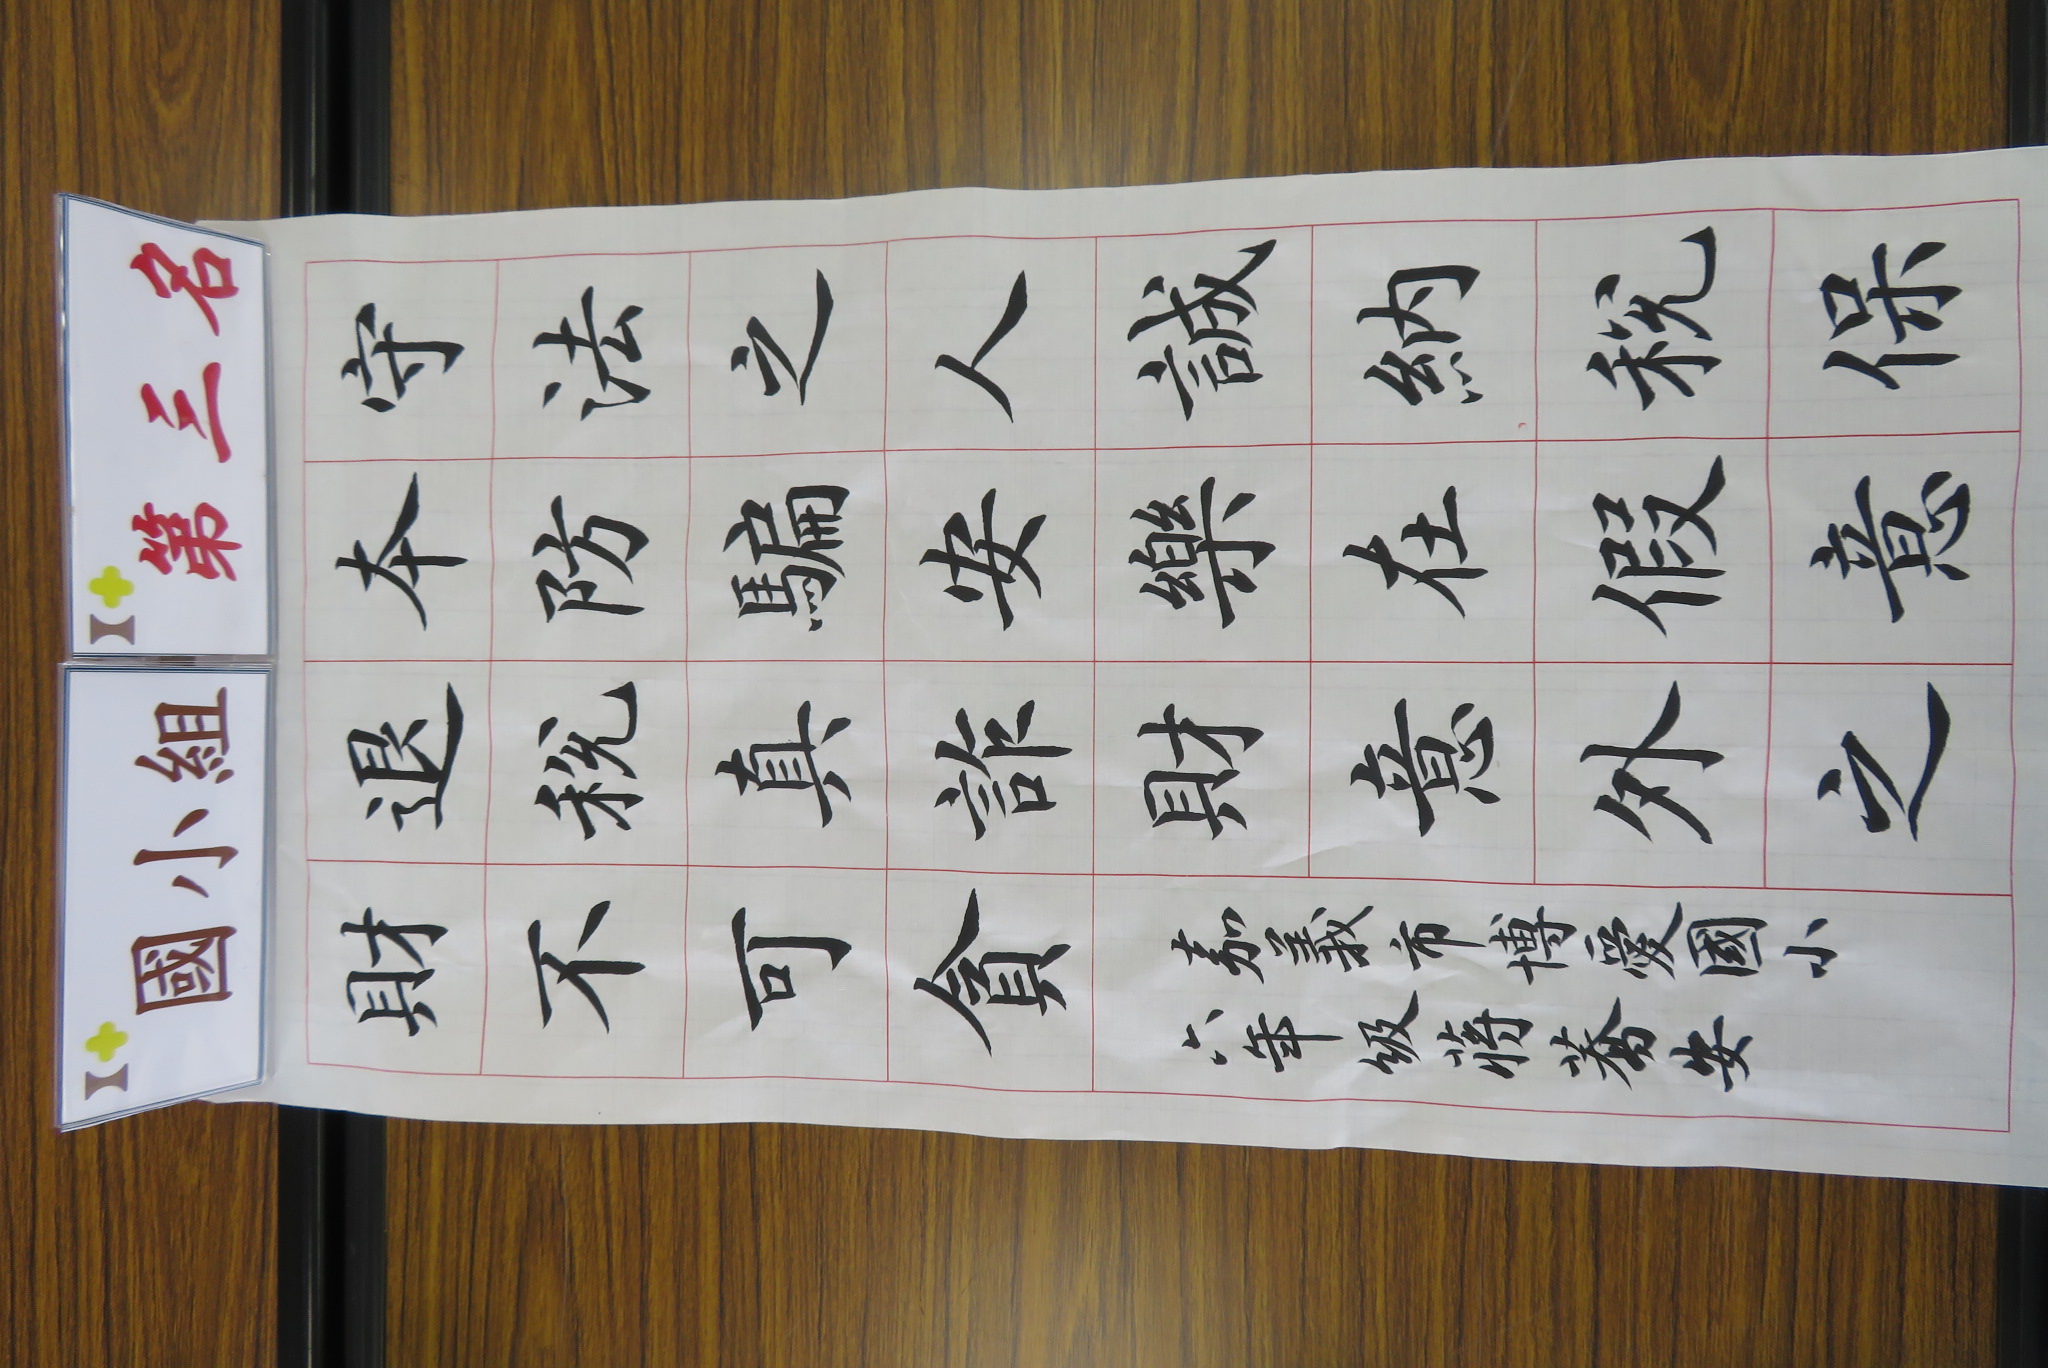 國小組
第三名
守法之人誠納稅保
本防騙安樂在假意
退稅真詐財意外之
財不可貪
嘉義市博愛國小
六年級蔣蕎安